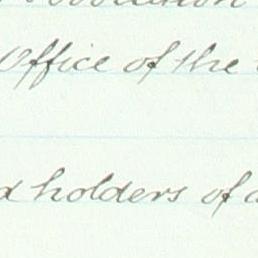 Office of the
holders of